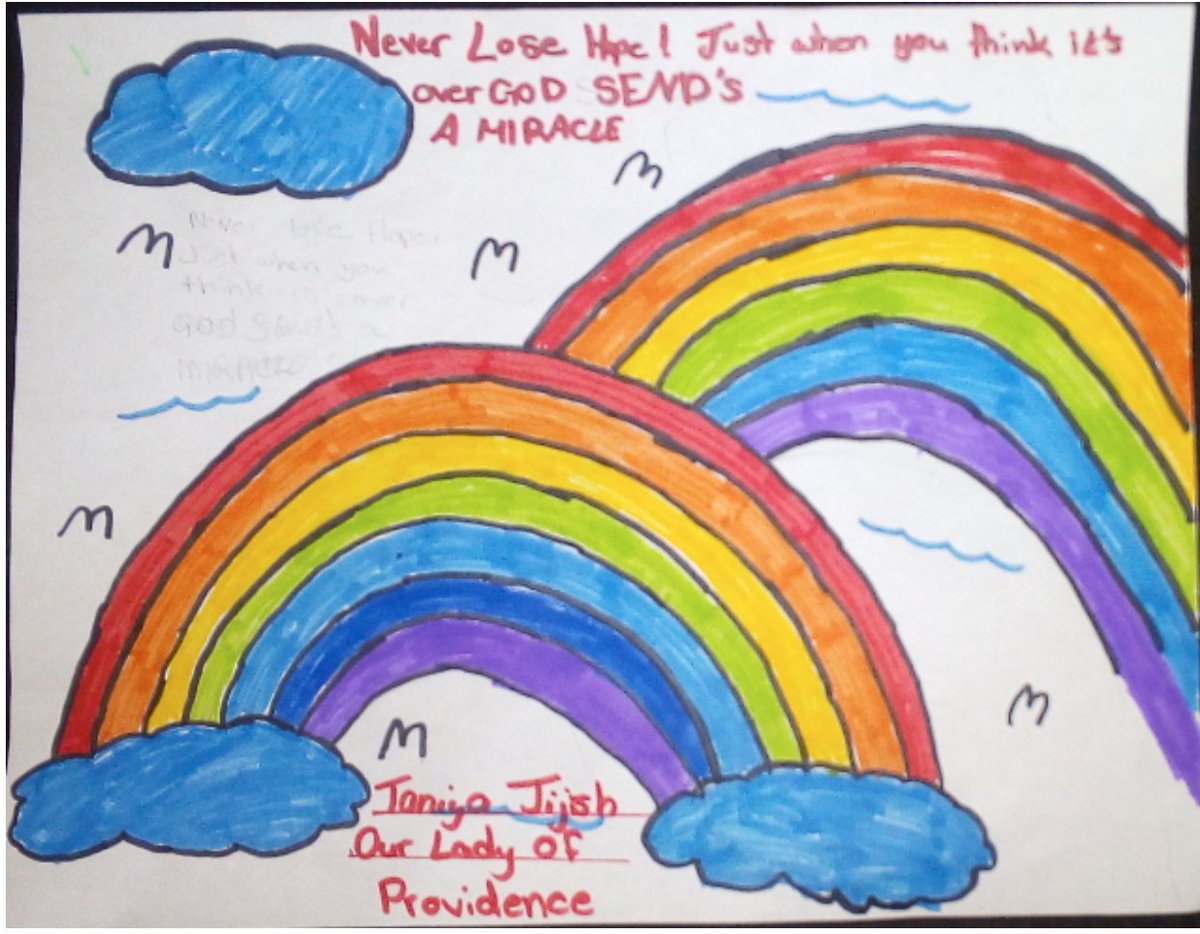 Never Lose Hope! Just when you think it's
over GOD SEND's
A MIRACLE
Never lose Hope.
Just when you
think it's over
God send's a
miracle
Taniya Jijish
Our Lady Of
Providence